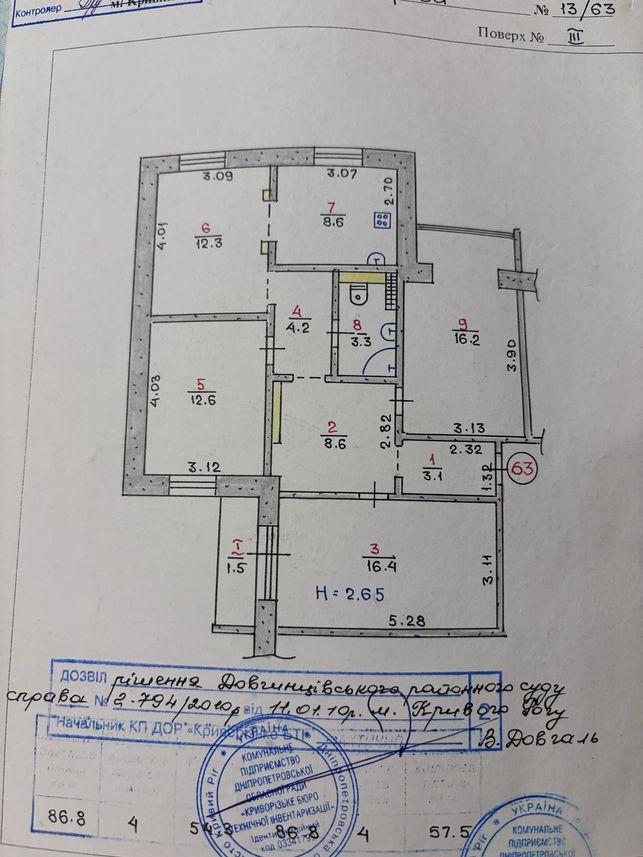 Контролер м. Кривий
№ 13/63
Поверх № III
3.09
3.07
2.70
4.01
6
12.3
7
8.6
4
4.2
8
3.3
9
16.2
3.90
4.03
5
12.6
3.12
2
8.6
2.82
3.13
2.32
1
3.1
1.32
63
I
1.5
3
16.4
3.11
H = 2.65
5.28
ДОЗВІЛ рішення Довгинцівського районного суду
справа № 2-794/2010р від 11.01.10р. м. Кривого Рогу
Начальник КП ДОР "Криворізьке БТІ"
В. Довгаль
УКРАЇНА
Дніпропетровська
місто Кривий Ріг
КОМУНАЛЬНЕ
ПІДПРИЄМСТВО
ДНІПРОПЕТРОВСЬКОЇ
ОБЛАСНОЇ РАДИ
«КРИВОРІЗЬКЕ БЮРО
ТЕХНІЧНОЇ ІНВЕНТАРИЗАЦІЇ»
Ідентифікаційний
код
86.8 4 54.3 86.8 4 57.5
УКРАЇНА
КОМУНАЛЬНЕ
ПІДПРИЄМСТВО